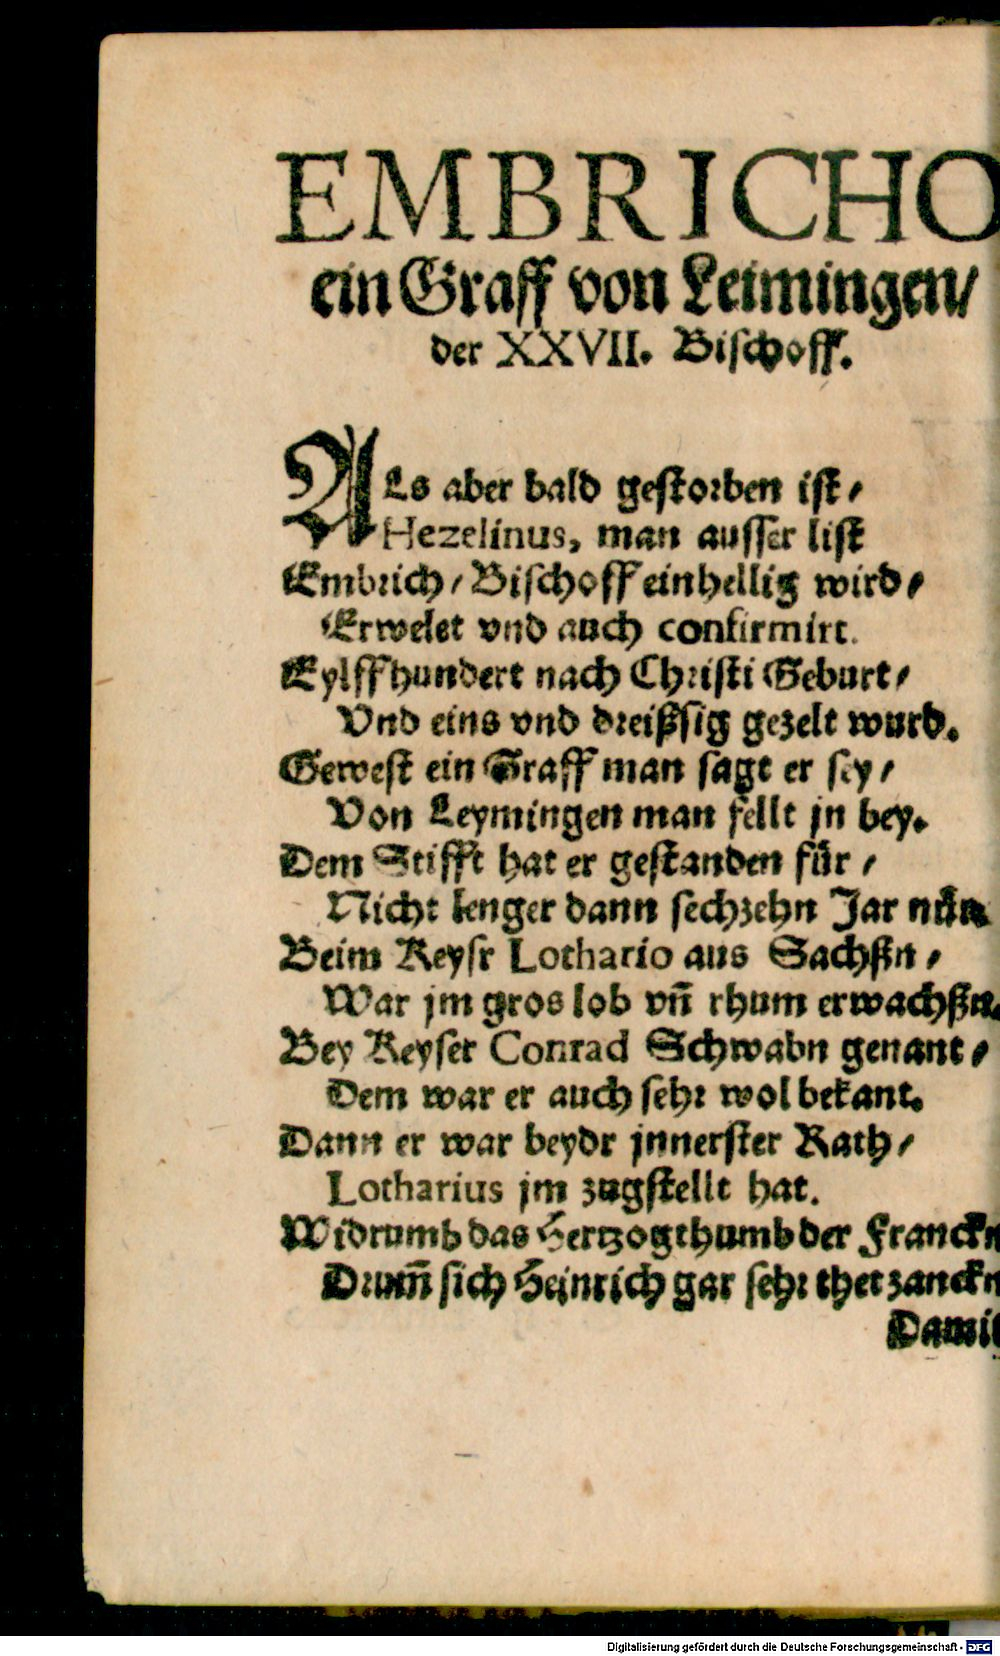 EMBRICHO
ein Graff von Leimingen/
der XXVII. Bischoff.
ALs aber bald gestorben ist/
Hezelinus, man ausser list
Embrich/ Bischoff einhellig wird/
Erwelet vnd auch confirmirt.
Eylffhundert nach Christi Geburt/
Vnd eins vnd dreißsig gezelt wurd.
Gewest ein Graff man sagt er sey/
Von Leymingen man fellt jn bey.
Dem Stifft hat er gestanden für/
Nicht lenger dann sechzehn Jar nün
Beim Keysr Lothario aus Sachßn/
War jm gros lob vñ rhum erwachßn.
Bey Keyser Conrad Schwabn genant/
Dem war er auch sehr wol bekant.
Dann er war beydr jnnerster Rath/
Lotharius jm zugstellt hat.
Widrumb das Hertzogthumb der Franckn
Drum̃ sich Heinrich gar sehr thet zanckn
Damit
Digitalisierung gefördert durch die Deutsche Forschungsgemeinschaft - DFG